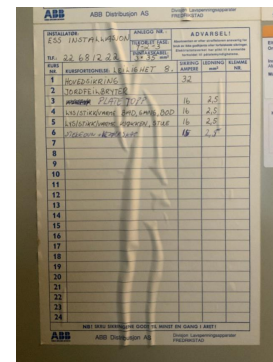 ABB ABB Distribusjon AS Divisjon Lavspenningsapparater
FREDRIKSTAD
INSTALLATØR: ANLEGG NR. ADVARSEL!
ESS INSTALLASJON
TILKOBLET FASE:
TLF.: 22 68 12 22 3x 35 mm²
KURS NR. KURSFORTEGNELSE: LEILIGHET 8. SIKRING AMPERE LEDNING mm² KLEMME NR.
1 HOVEDSIKRING 32
2 JORDFEILBRYTER
3 PLATETOPP 16 2,5
4 LYS/STIKK/VARME BAD, GANG, BOD 16 2,5
5 LYS/STIKK/VARME KJØKKEN, STUE 16 2,5
6
7
8
9
10
11
12
13
14
15
16
17
18
19
20
21
22
23
24
NB! SERIE
ABB ABB Distribusjon AS Divisjon Lavspenningsapparater
FREDRIKSTAD